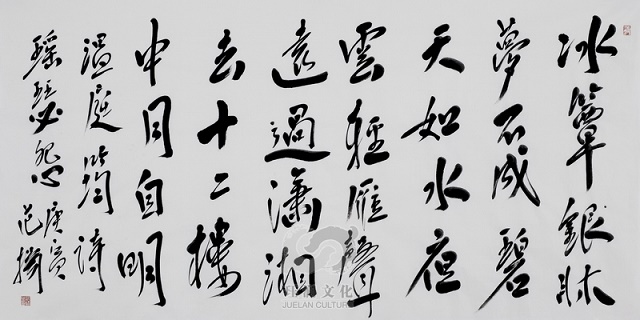 冰簟銀牀
夢不成碧
天如水夜
雲輕雁聲
遠過瀟湘
去十二樓
中月自明
溫庭筠詩
瑤瑟怨 庚寅
文化
JUELAN CULTURE